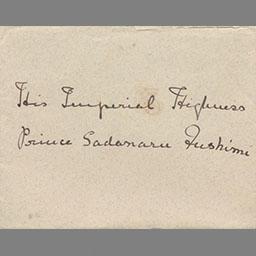 His Imperial Highness
Prince Sadanaru Fushimi